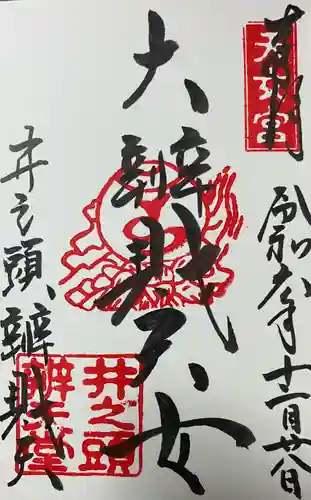 奉拝
令和六年十一月廿八日
大辨財天女
井之頭辨財天
井之頭
辨天堂